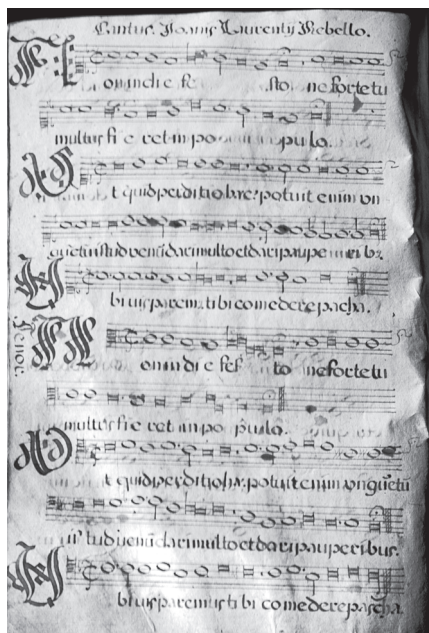 Cantus. Joannis Laurentij Rebello.
Non in di e fe sto, ne forte tu
multus fi e ret in po pulo.
Ut quid perditio hæc? potuit enim un
guētū istud venūdari multo et dari pauperibꝫ.
Ubi vis paremus tibi comedere pascha.
Tenor.
Non in di e fes to ne forte tu
multus fi e ret in po pulo.
Ut quid perditio hæc: potuit enim unguētū
istud venūdari multo et dari pauperibus.
Ubi vis paremus ti bi comedere pascha.